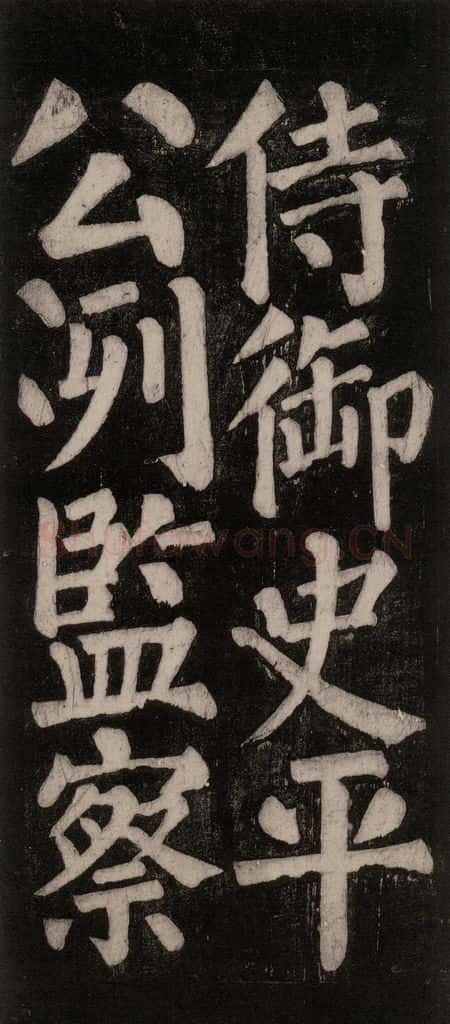 侍御史平
公冽監察
Shufawang.CN